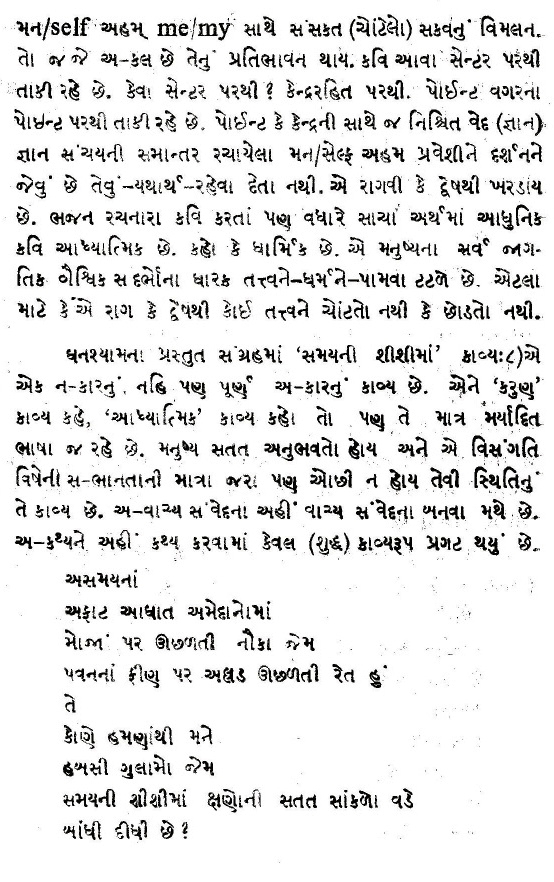 મન/self અહમ્ me/my સાથે સંસકત (ચોંટેલા) સકવનું વિમલન.
તો જ જે અ-કલ છે તેનું પ્રતિભાવન થાય. કવિ આવા સેન્ટર પરથી
તાકી રહે છે. કેવા સેન્ટર પરથી ? કેન્દ્રરહિત પરથી. પોઈન્ટ વગરના
પોઇન્ટ પરથી તાકી રહે છે. પોઈન્ટ કે કેન્દ્રની સાથે જ નિશ્ચિત વેદ (જ્ઞાન)
જ્ઞાન સંચયની સમાન્તર રચાયેલા મન/સેલ્ફ અહમ પ્રવેશીને દર્શનને
જેવું છે તેવું-યથાર્થ-રહેવા દેતા નથી. એ રાગથી કે દ્વેષથી ખરડાય
છે. ભજન રચનારા કવિ કરતાં પણ વધારે સાચા અર્થમાં આધુનિક
કવિ આધ્યાત્મિક છે. કહો કે ધાર્મિક છે. એ મનુષ્યના સર્વ જાગ-
તિક વૈશ્વિક સંદર્ભોના ધારક તત્ત્વને-ધર્મને-પામવા ટટળે છે. એટલા
માટે કે એ રાગ કે દ્વેષથી કોઈ તત્ત્વને ચોંટતો નથી કે છોડતો નથી.
ઘનશ્યામના પ્રસ્તુત સંગ્રહમાં ‘સમયની શીશીમાં’ કાવ્યઃ૮)એ
એક ન-કારનું, નહિ પણ પૂર્ણ અ-કારનું કાવ્ય છે. એને ‘કરુણ’
કાવ્ય કહે, ‘આધ્યાત્મિક’ કાવ્ય કહો તો પણ તે માત્ર મર્યાદિત
ભાષા જ રહે છે. મનુષ્ય સતત અનુભવતો હોય અને એ વિસંગતિ
વિષેની સ-ભાનતાની માત્રા જરા પણ ઓછી ન હોય તેવી સ્થિતિનું
તે કાવ્ય છે. અ-વાચ્ય સંવેદના અહીં વાચ્ય સંવેદના બનવા મથે છે.
અ-કથ્યને અહીં કથ્ય કરવામાં કેવલ (શુદ્ધ) કાવ્યરૂપ પ્રગટ થયું છે.
અસમયનાં
અફાટ આઘાત અમેદાનોમાં
મોજાં પર ઊછળતી નૌકા જેમ
પવનનાં ફીણ પર અલ્લડ ઊછળતી રેત હું
તે
કોણે હમણાંથી મને
હબસી ગુલામો જેમ
સમયની શીશીમાં ક્ષણોની સતત સાંકળો વડે
બાંધી દીધી છે ?